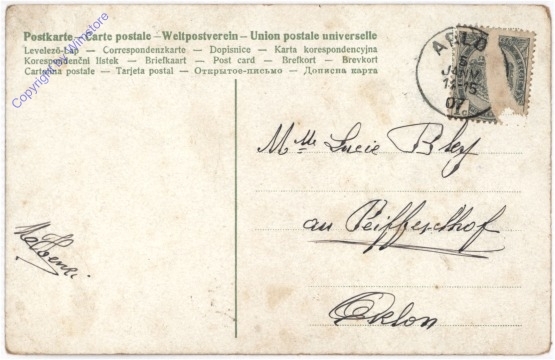 Postkarte — Carte postale — Weltpostverein — Union postale universelle
Levelező-Lap — Correspondenzkarte — Dopisnice — Karta korespondencyjna
Korespondenční lístek — Briefkaart — Post card — Brefkort — Brevkort
Cartolina postale — Tarjeta postal — Открытое-письмо — Дописна карта
Copyright by Wimstore
ARLO
5
JANV
12-15
07
Mlle Lucie Bley
au Peiffeschhof